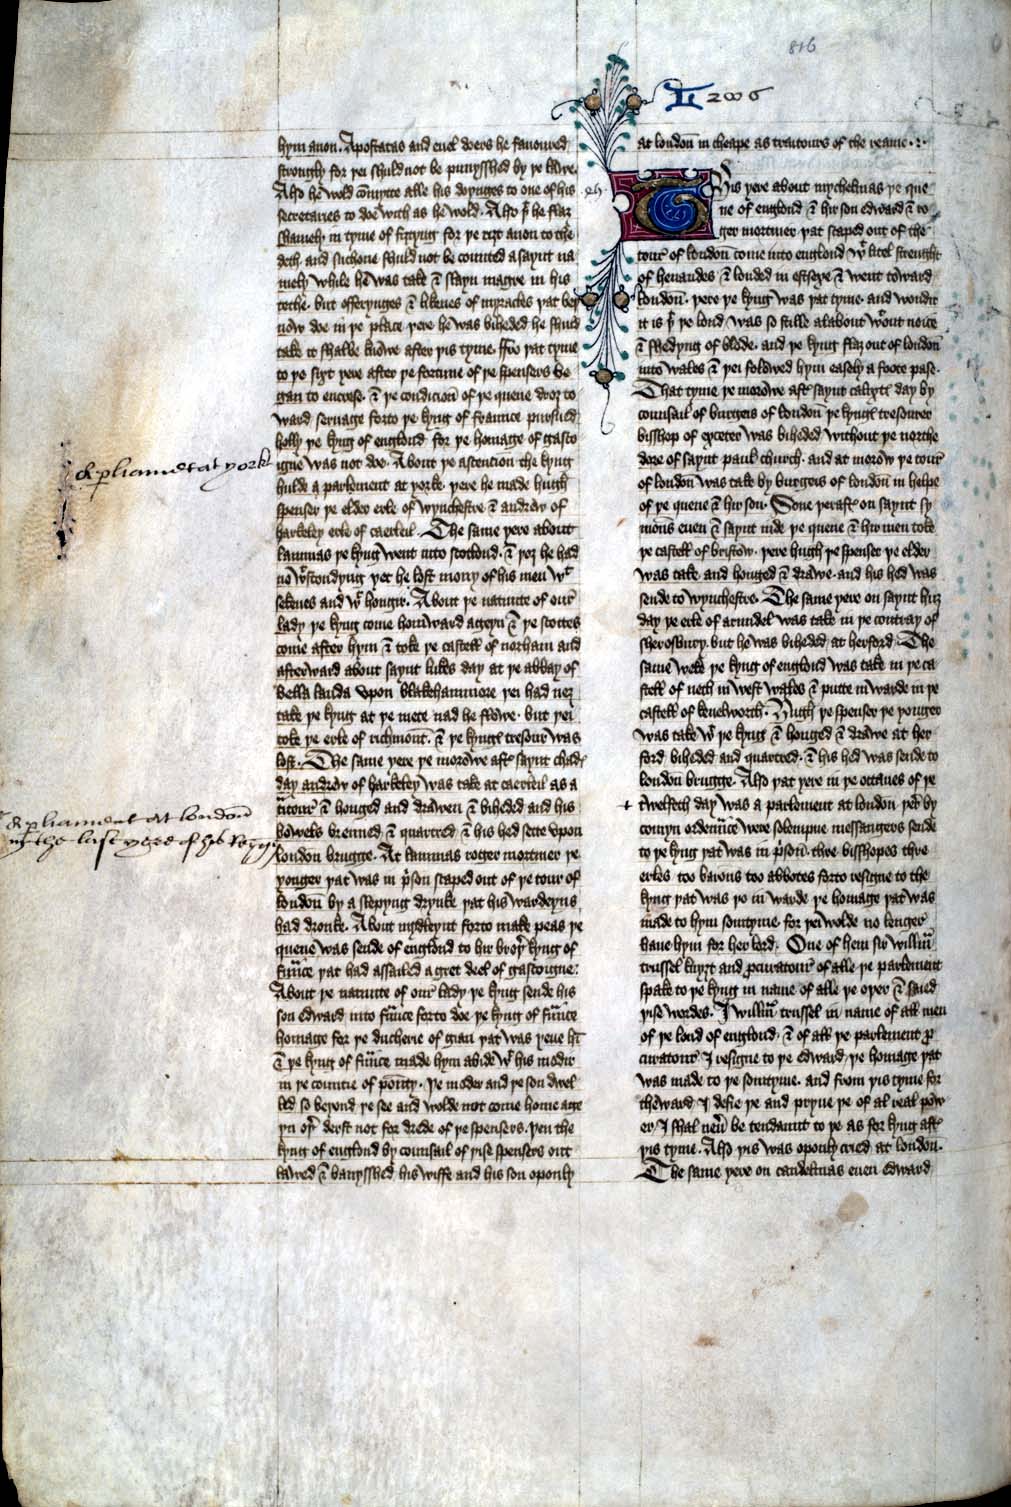 816
L 2006
hym anon. Apostatas and euel doers he fauoured
strongly for þei schuld not be punysshed by þe lawe.
Also he wold comytte alle his doynges to one of his
secretaries to doe with as he wold. Also þt he flaz
shamely in tyme of fiztyng for þe rizt anon to the
deth. and suchone schuld not be counted a saynt na
mely while he was take & slayn magre in his
tethe. but offerynges & liknes of myracles þat bey
now doe in þe place þere he was biheded he shuld
take it shalbe knowe after þis tyme. ffro þat tyme
to þe sixt yere after þe fortune of þe spensers be
gan to encrese. & þe condicion of þe quene droz to
ward seruage forto þe kyng of fraunce pursued
holly þe kyng of englond for þe homage of gasco
igne was not doe. About þe ascention the kyng
hulde a parlement at yorke. þere he made hugh
spenser þe elder erle of wynchestre & andrew of
harkeley erle of caerleil. The same yere about
lammas þe kyng went into scotlond. & þoz he had
no wtstondyng yet he lost mony of his men wt
sekenes and wt hongir. About þe natiuite of our
lady þe kyng come homward ageyn & þe scottes
come after hym & toke þe castell of norham and
afterward about saynt lukes day at þe abbay of
bella landa vpon blakehammore þei had nez
take þe kyng at þe mete nad he flowe. but þei
toke þe erle of richmont. & þe kynges tresour was
lost. The same yere þe morowe aft saynt chades
day andrew of harkeley was take at caerleil as a
traitour & honged and drawen & biheded and his
bowels brenned & quartred & his hed sette vpon
london brugge. At lammas roger mortimer þe
yonger þat was in prison staped out of þe tour of
london by a slepyng drynke þat his wardeyns
had dronke. About mydleynt forto make peas þe
quene was sende of englond to hir broþer kyng of
fraunce þat had assailed a gret deel of gascoigne:
About þe natiuite of our lady þe kyng sende his
son edward into fraunce forto doe þe kyng of fraunce
homage for þe ducherie of gian þat was yeue him
& þe kyng of fraunce made hym abide wt his modir
in þe countie of pontty. þe moder and þe son dwel
led so beyond þe see and wolde not come home age
yn oþer derst not for drede of þe spensers. þen the
kyng of englond by counsail of þise spensers out
lawed & banysshed his wiffe and his son oponly
&c pliament at yorke
&c pliament at london
in the last yere of his Reygn
at london in cheape as traitours of the reame.
This yere about mychelmas þe que
ne of englond & hir son edward & ro
ger mortimer þat staped out of the
tour of london come into englond wt litel strenght
of henaudes & londed in estsexe & went toward
london. þere þe kyng was þat tyme. and wondir
it is þt þe lond was so stille al about wtout noice
& shedyng of blode. and þe kyng flaz out of london
into wales & þei folowed hym easely a foote pase.
That tyme þe morowe aft saynt calyxtes day by
counsail of burgeis of london þe kynges tresourer
bisshop of exceter was biheded without þe northe
dore of saynt paules church. and at morow þe tour
of london was take by burgeis of london in helpe
of þe quene & hir son. Sone þeraft on saynt sy
mons euen & saynt iude þe quene & hir men toke
þe castell of bristow. þere hugh þe spenser þe elder
was take. and honged & drawe. and his hed was
sende to wynchestre. The same yere on saynt huz
day þe erle of arundel was take in þe contray of
sherosbury. but he was biheded at herford. The
same weke þe kyng of englond was take in þe ca
stell of neth in west wales & putte in warde in þe
castell of kenelworth. Hugh þe spenser þe yonger
was take wt þe kyng & honged & drawe at her
ford biheded and quartred. & his hed was sende to
london brugge. Also þat yere in þe octaues of þe
+ twelfeth day was a parlement at london þere by
comyn ordenaunce were solempne messangers sende
to þe kyng þat was in prison. thre bisshopes thre
erles too barons too abbotes forto resigne to the
kyng þat was so in warde þe homage þat was
made to hym somtyme. for þei wolde no lenger
haue hym for her lord. One of hem sir william
trussel knyzt and procuratour of alle þe parlement
spake to þe kyng in name of alle þe oþer & saied
þise wordes. I william trussel in name of all men
of þe lond of englond. & of all þe parlement pro
curatour I resigne to þe edward þe homage þat
was made to þe somtyme. and from þis tyme for
theward I defie þe and pryue þe of al real pow
er. I shal neuer be tendaunt to þe as for kyng aft
þis tyme. Also þis was oponly cried at london.
The same yere on candelmas euen Edward